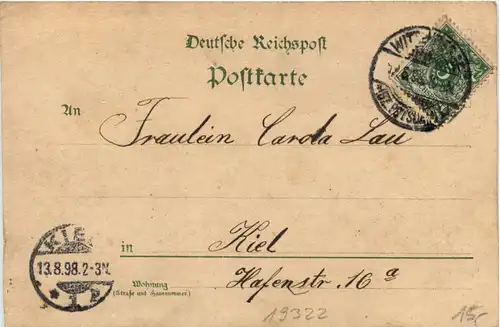 Deutsche Reichspost
Postkarte
An
Fräulein Carola Lau
in Kiel
Wohnung
(Straße und Hausnummer)
Hafenstr. 16 a
KIEL
13.8.98.2-3N.
* 1 P
19322
15,-